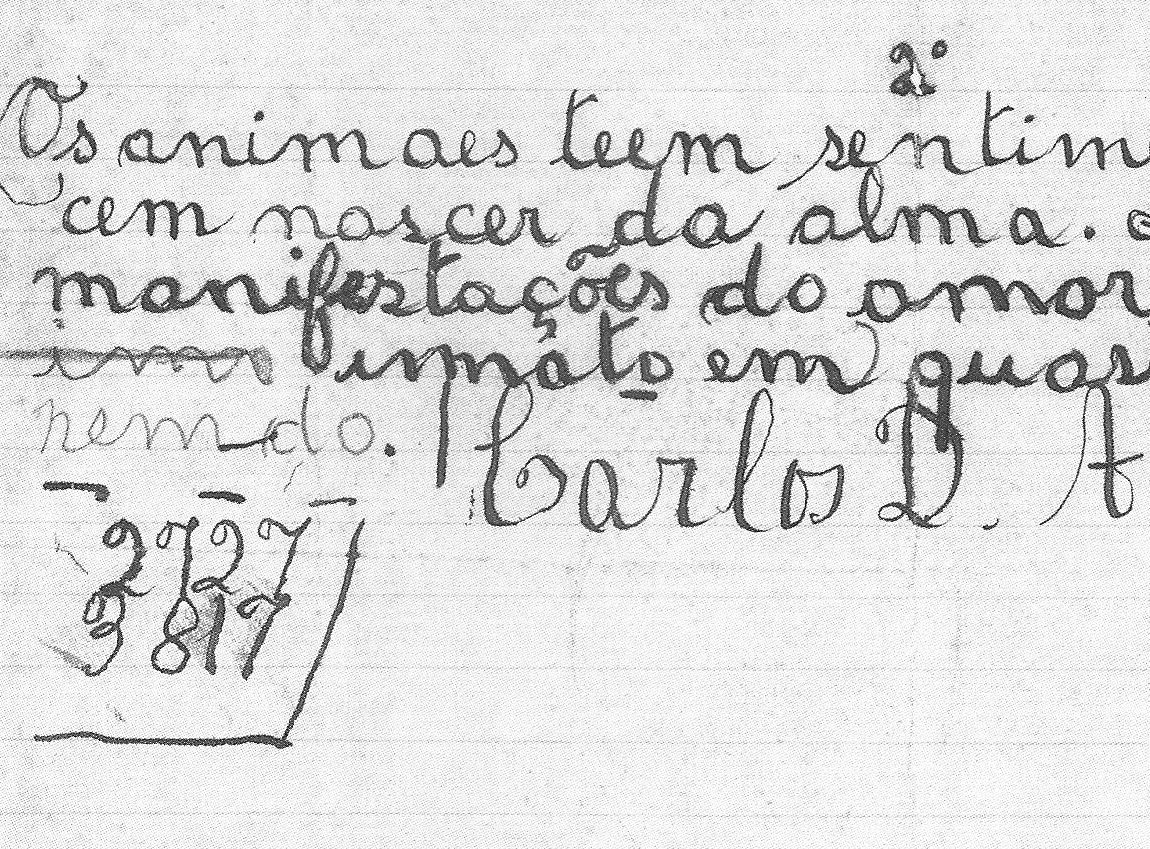 2º
Os animaes teem sentim
cem nascer da alma.
manifestações do amor
innato em quas
nem do. Carlos D. A
2727
3817